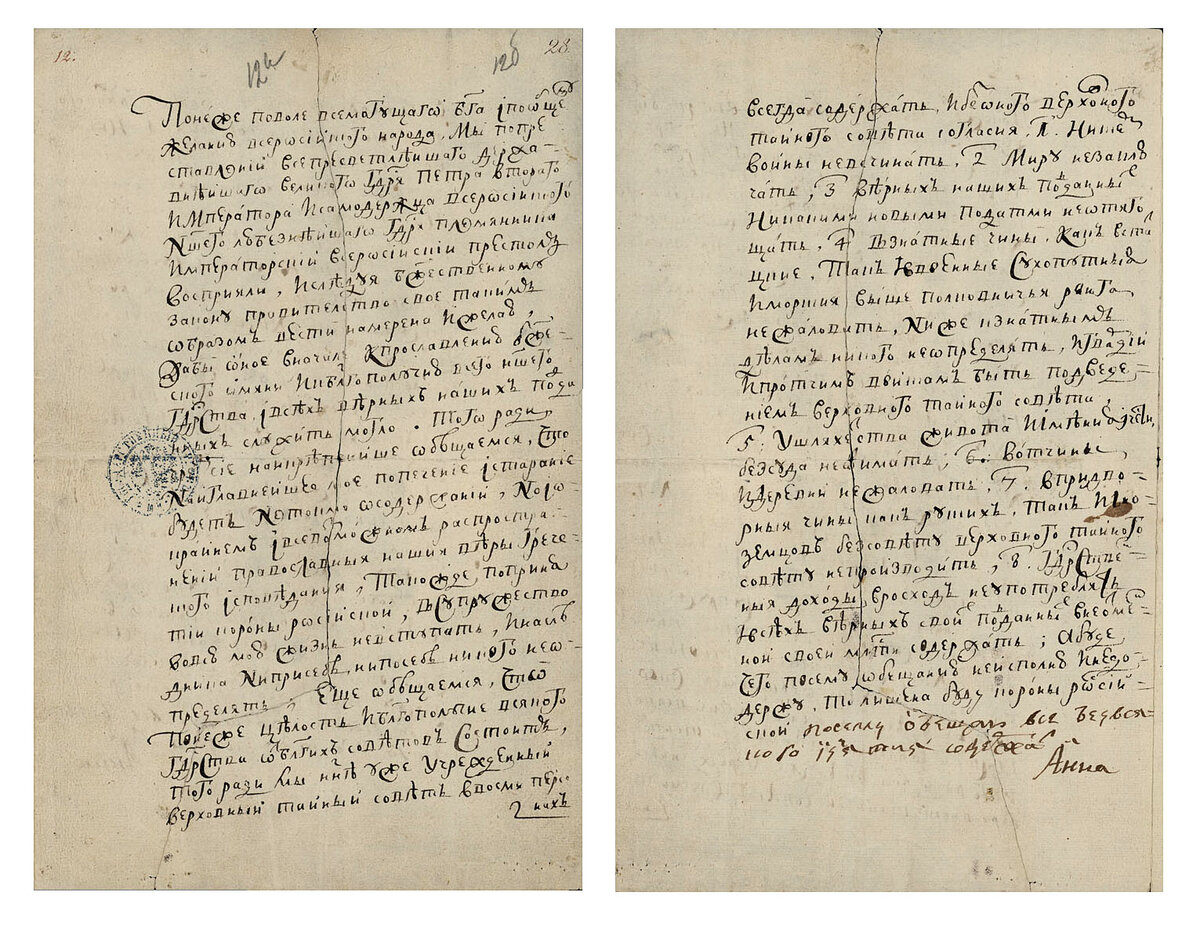 12.
12а
12б
28
Понеже поволе всемогущаго бга и пообще
желанию всероссийского народа, Мы попре
ставлении всепресветлейшаго держа-
внейшаго великого Гдря Петра второго
Императора и самодержца всероссийского
Ншего любезнейшаго Гдря племянника
Императорский всероссийский престолъ
восприяли, и следуя бжественному
закону правителство свое такимъ
образомъ вести намерена и желаю,
дабы оное вначале кпрославлению бже-
ского имяни и кблгополучию всего ншего
гдрства и всехъ верныхъ нашихъ подда
ныхъ служить могло. Того ради,
чрезъ сие наикрепчайше обещаемся, что
Наиглавнейшее мое попечение и старание
будетъ не токмо о содержании, но и о
крайнемъ и всевозможномъ распростра-
нении православныя нашия веры грече
ского исповедания, Такожде, поприня
тии короны российской, всупружество
во всю мою жизнь невступать, и наслѣ
дника, ни при себе, ни по себе никого неоп
ределять, Еще обещаемся, что
Понеже целость и блгополучие всякого
гдрства от благихъ советовъ состоитъ,
того ради мы ныне уже учрежденный
верховный тайный советъ ввосми персо
нахъ
всегда содержать, и без оного верховного
тайного совета согласия, 1. Ни с кем
войны невсчинать, 2 Миру незаклю
чать, 3 верныхъ нашихъ подданныхъ
никакими новыми податми неотяго
щать, 4 взнатные чины, какъ вста
цкие, такъ ивоенные сухопутные
и морския выше полковничья ранга
нежаловать, ниже кзнатнымъ
деламъ никого неопределять, и гвардии
и протчимъ войскам быть подведе-
ниемъ верховного тайного совета,
5. Ушляхетства живота и имения и чести,
безсуда неотимать; 6. вотчины
и деревни нежаловать, 7. впридво-
рныя чины какъ руских, такъ и ино-
земцовъ безсовету верховного тайного
совету непроизводить, 8. гдрстве-
ныя доходы врасходъ неупотреблять
и всехъ верныхъ своих подданныхъ внеотме-
нной своей млсти содержать; Абуде
чего посему обещанию неисполню и недо-
держу, то лишена буду короны росий-
ской
посему обещаю все безвся-
кого изъятия содержать
Анна